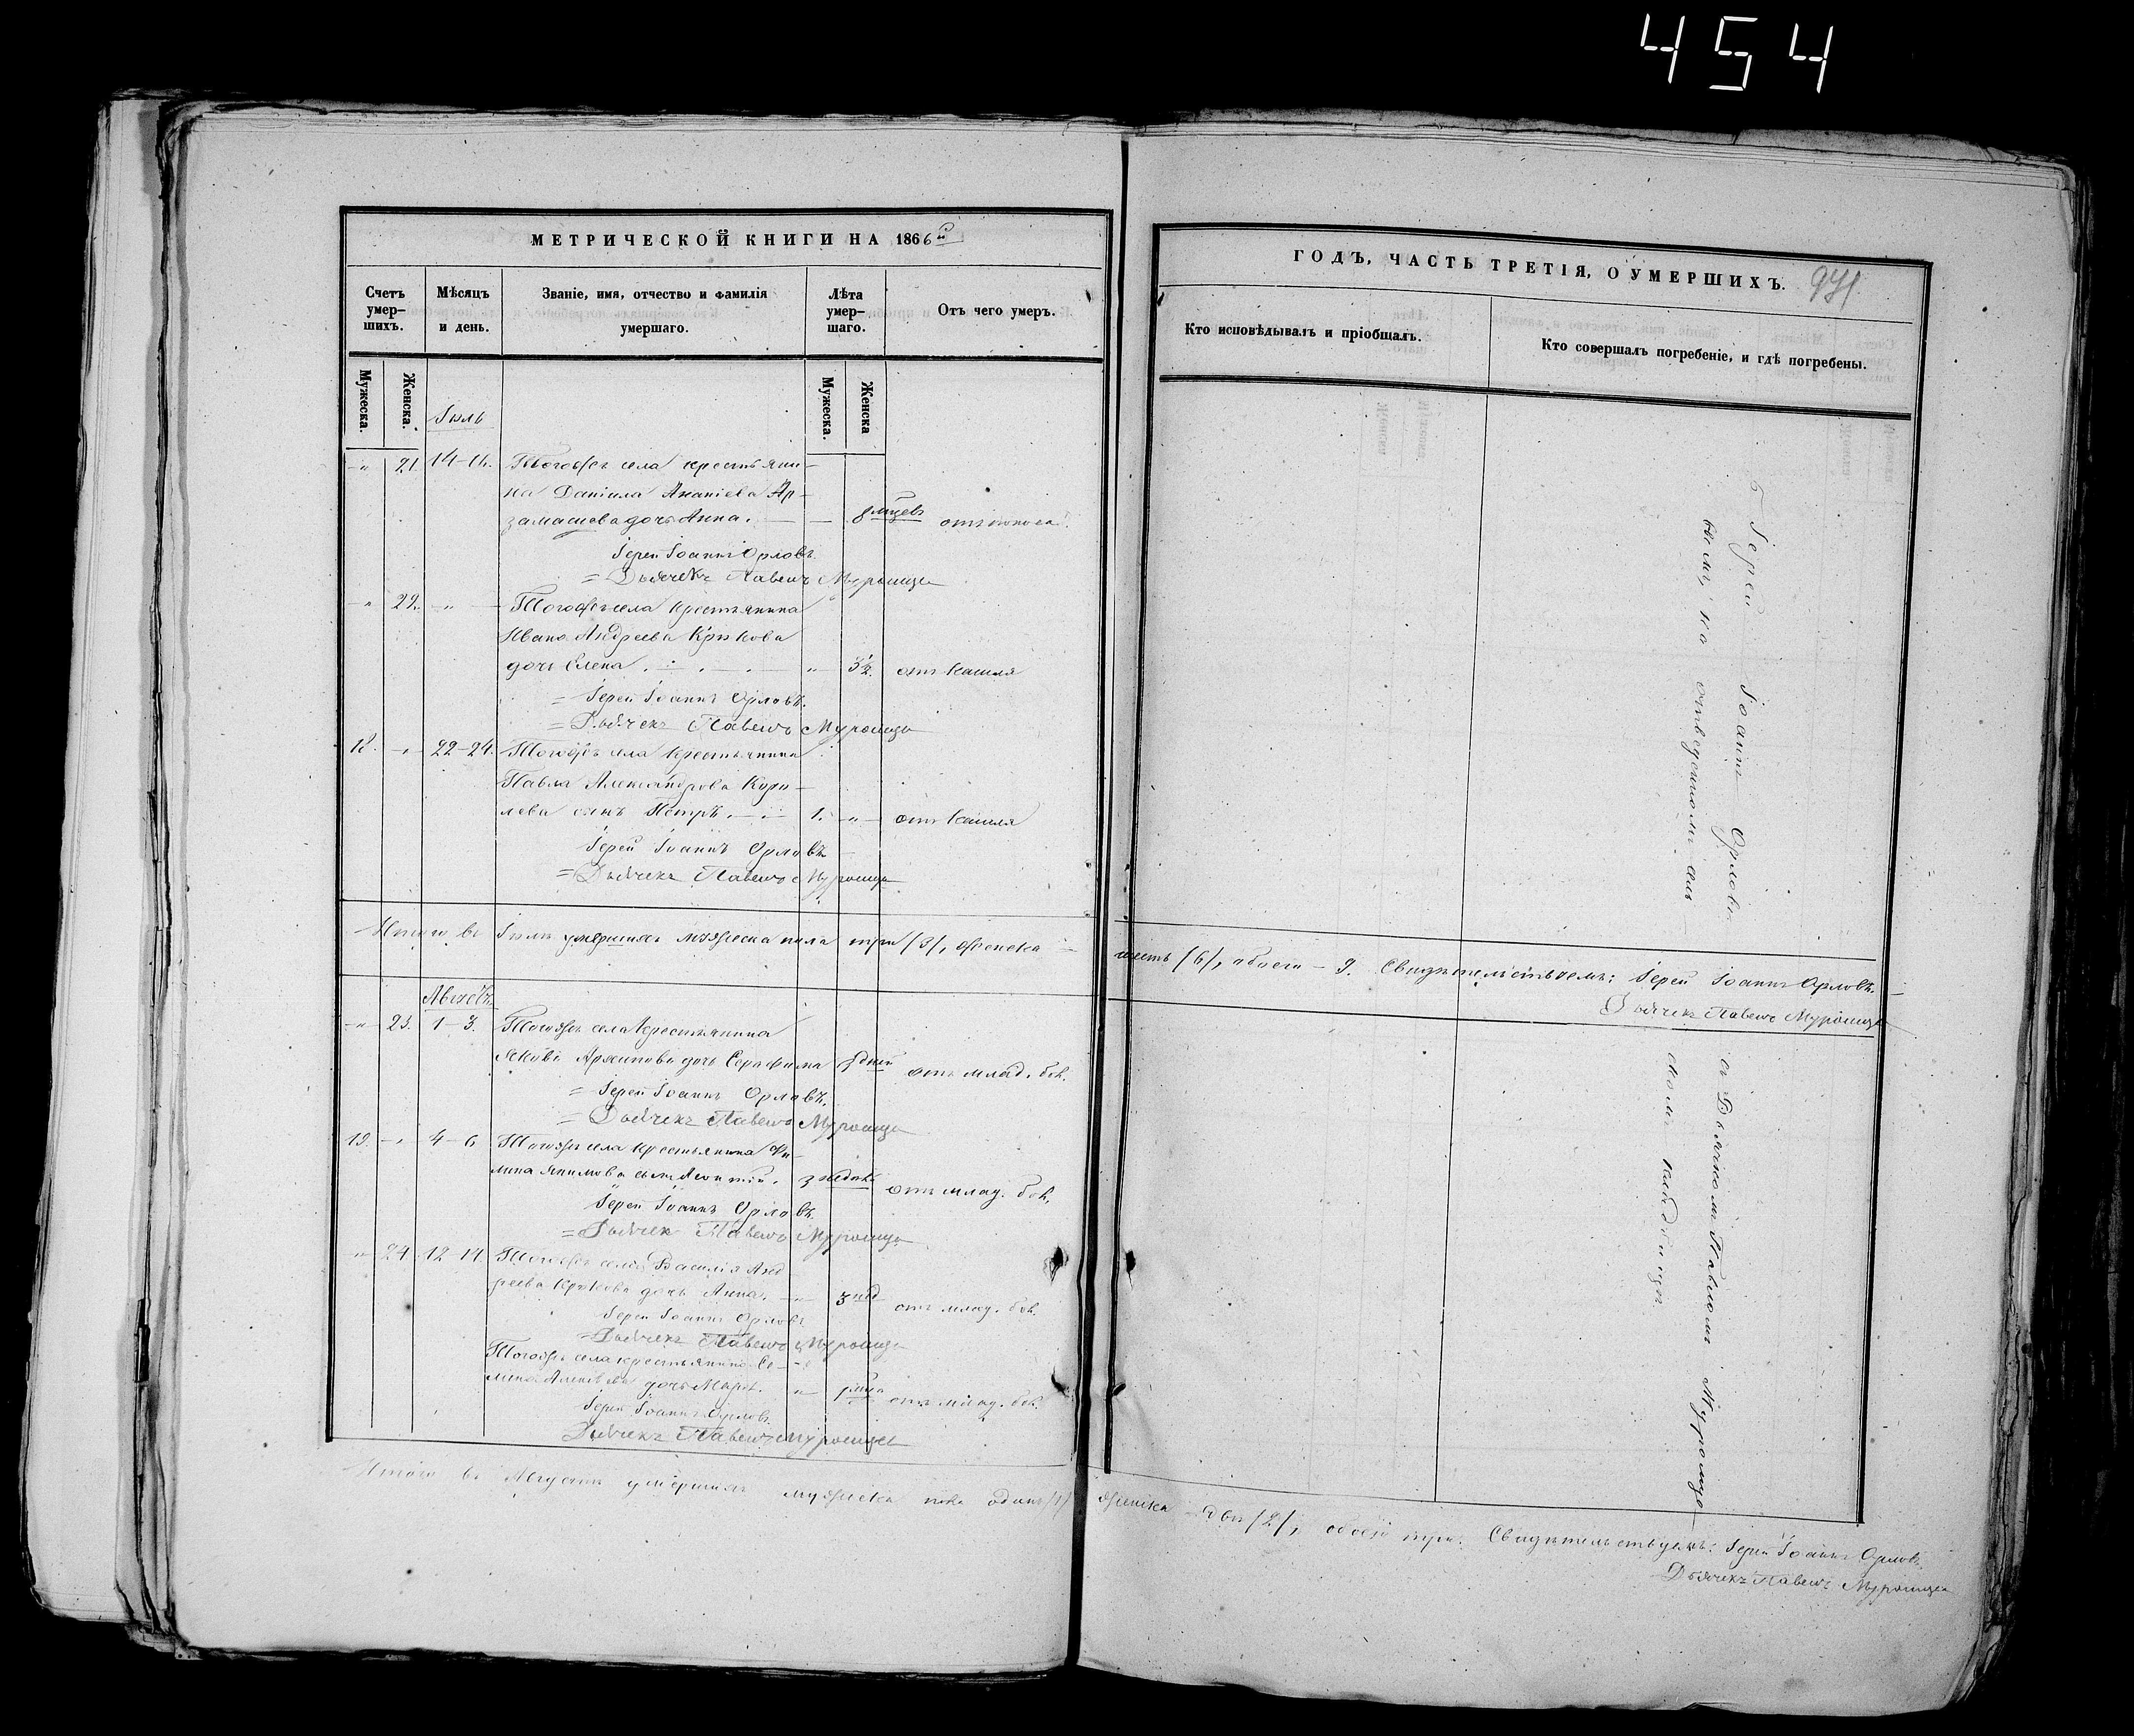 454
МЕТРИЧЕСКОЙ КНИГИ НА 1866й
Счетъ умер-
шихъ.
Мѣсяцъ
и день.
Званіе, имя, отчество и фамилія
умершаго.
Лѣта
умер-
шаго.
Отъ чего умеръ.
Мужеска.
Женска.
Мужеска.
Женска
Іюль
21. 14-16. Тогожъ села крестьяни-
на Даніила Ананіева Ар-
замасцева дочь Анна. 8 мцевъ отъ поноса.
Іерей Іоаннъ Орловъ.
Дьячекъ Павелъ Муромцев
22. Тогожъ села крестьянина
Ивана Андреева Крюкова
дочь Елена 3½. отъ кашля
Іерей Іоаннъ Орловъ.
Дьячекъ Павелъ Муромцев
18. 22-24. Тогожъ села крестьянина
Павла Александрова
сынъ Петръ. 1. отъ кашля
Іерей Іоаннъ Орловъ
Дьячекъ Павелъ Муромцев
Итого въ Іюлѣ умершихъ мужеска пола три /3/, женска
Августъ.
23. 1-3. Тогожъ села крестьянина
Якова Архипова дочь Серафима 8 дней отъ млад. бол.
Іерей Іоаннъ Орловъ.
Дьячекъ Павелъ Муромцев
19. 4-6 Тогожъ села крестьянина Фи-
липа Якимова сынъ 3 недѣль отъ млад. бол.
Іерей Іоаннъ Орловъ
Дьячекъ Павелъ Муромцев
24. 12-14. Тогожъ села Василія Анд-
реева Крюкова дочь Анна. 3 нед отъ млад. бол.
Іерей Іоаннъ Орловъ
Дьячекъ Павелъ Муромцев
Тогожъ села крестьянина Се-
дочь отъ млад. бол.
Іерей Іоаннъ Орловъ
Дьячекъ Павелъ Муромцев
Итого въ Августѣ умершихъ мужеска пола одинъ /1/
ГОДЪ, ЧАСТЬ ТРЕТІЯ, О УМЕРШИХЪ.
971
Кто исповѣдывалъ и пріобщалъ.
Кто совершалъ погребеніе, и гдѣ погребены.
Іерей Іоаннъ Орловъ
съ Дьячкомъ Павломъ Муромце-
вымъ, на отведенномъ сель
скомъ кладбищѣ.
шесть /6/, обоего - 9. Свидѣтельствуемъ: Іерей Іоаннъ Орловъ.
Дьячекъ Павелъ Муромцев
женска двѣ /2/, обоего три. Свидѣтельствуемъ: Іерей Іоаннъ Орловъ
Дьячекъ Павелъ Муромцев